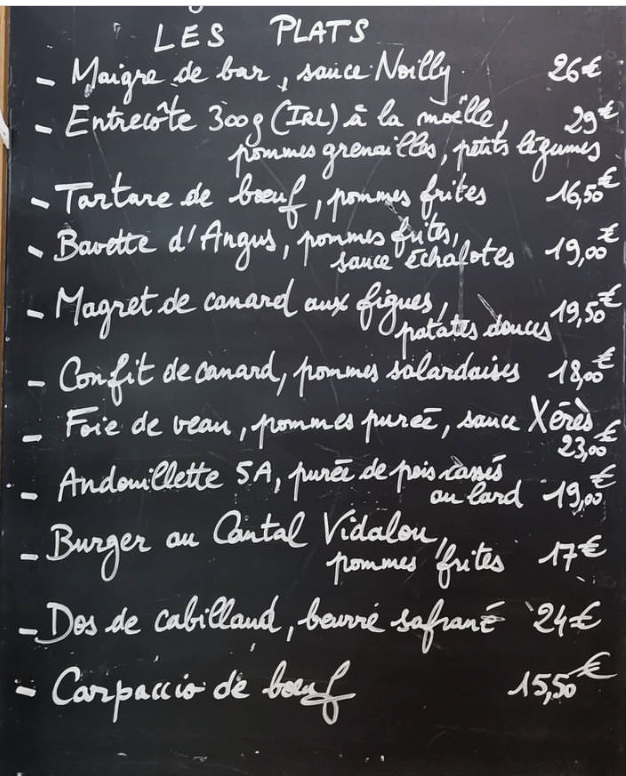 LES PLATS
- Maigre de bar, sauce Noilly. 26€
- Entrecôte 300g (IRL) à la moëlle, 29€
pommes grenailles, petits légumes
- Tartare de bœuf, pommes frites 16,50€
- Bavette d'Angus, pommes frites, 19,00€
sauce échalotes
- Magret de canard aux figues, 19,50€
patates douces
- Confit de canard, pommes salardaises 18,00€
- Foie de veau, pommes pureé, sauce Xérès
23,00€
- Andouillette 5A, purée de pois cassés
au lard 19,00€
- Burger au Cantal Vidalou,
pommes frites 17€
- Dos de cabillaud, beurre safrané 24€
- Carpaccio de bœuf 15,50€